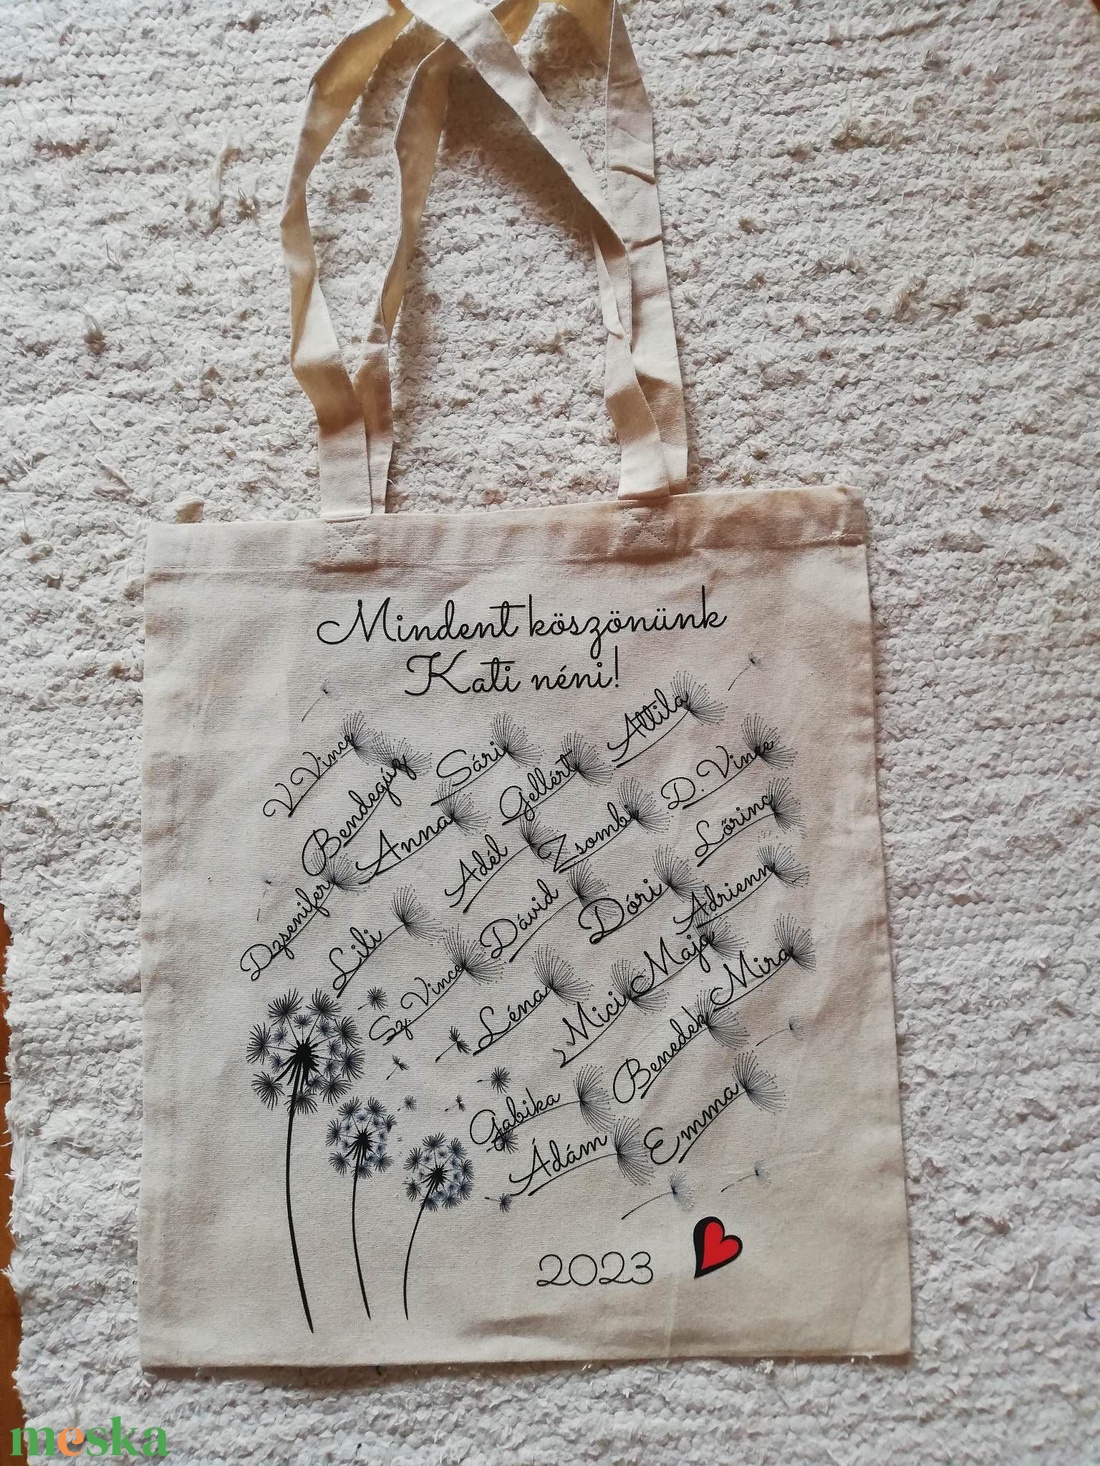 Mindent köszönünk
Kati néni!
V. Vince
Bendegúz
Sári
Gellért
Attila
Dzsenifer
Anna
Adél
Zsombi
D. Vince
Lili
Dávid
Dóri
Lőrinc
Sz. Vince
Léna
Mici
Maja
Adrienn
Gabika
Benedek
Mira
Ádám
Emma
2023
meska